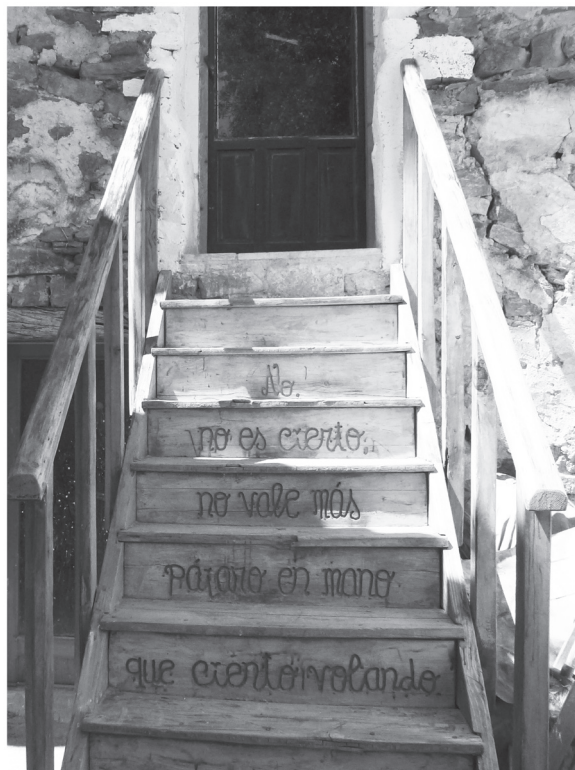 No.
no es cierto.
no vale más
pájaro en mano
que ciento volando